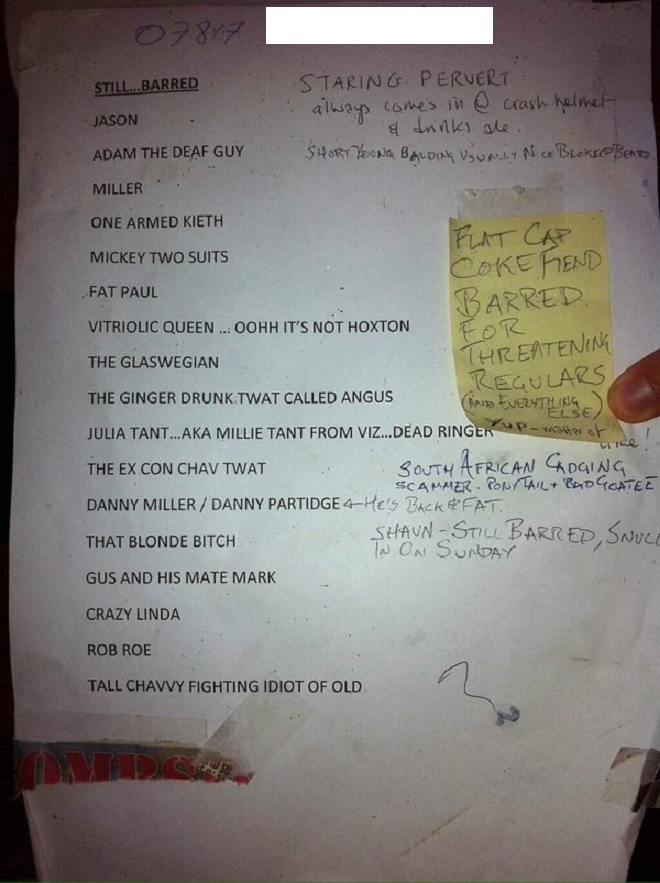 07817
STILL...BARRED
STARING PERVERT
always comes in @ crash helmet
& drinks ale.
JASON
ADAM THE DEAF GUY
SHORT YOUNG BALDING USUALLY NICE BLOKE @ BEARD
MILLER
ONE ARMED KIETH
MICKEY TWO SUITS
FAT PAUL
VITRIOLIC QUEEN ... OOHH IT'S NOT HOXTON
THE GLASWEGIAN
THE GINGER DRUNK TWAT CALLED ANGUS
JULIA TANT...AKA MILLIE TANT FROM VIZ...DEAD RINGER
FLAT CAP
COKE FIEND
BARRED.
FOR
THREATENING
REGULARS
(AND EVERYTHING
ELSE)
YUP - matter of
time!
THE EX CON CHAV TWAT
SOUTH AFRICAN CADGING
SCAMMER - PONYTAIL + BAD GOATEE
DANNY MILLER / DANNY PARTIDGE ← HE'S BACK & FAT.
THAT BLONDE BITCH
SHAUN - STILL BARRED,
IN ON SUNDAY
GUS AND HIS MATE MARK
CRAZY LINDA
ROB ROE
TALL CHAVVY FIGHTING IDIOT OF OLD